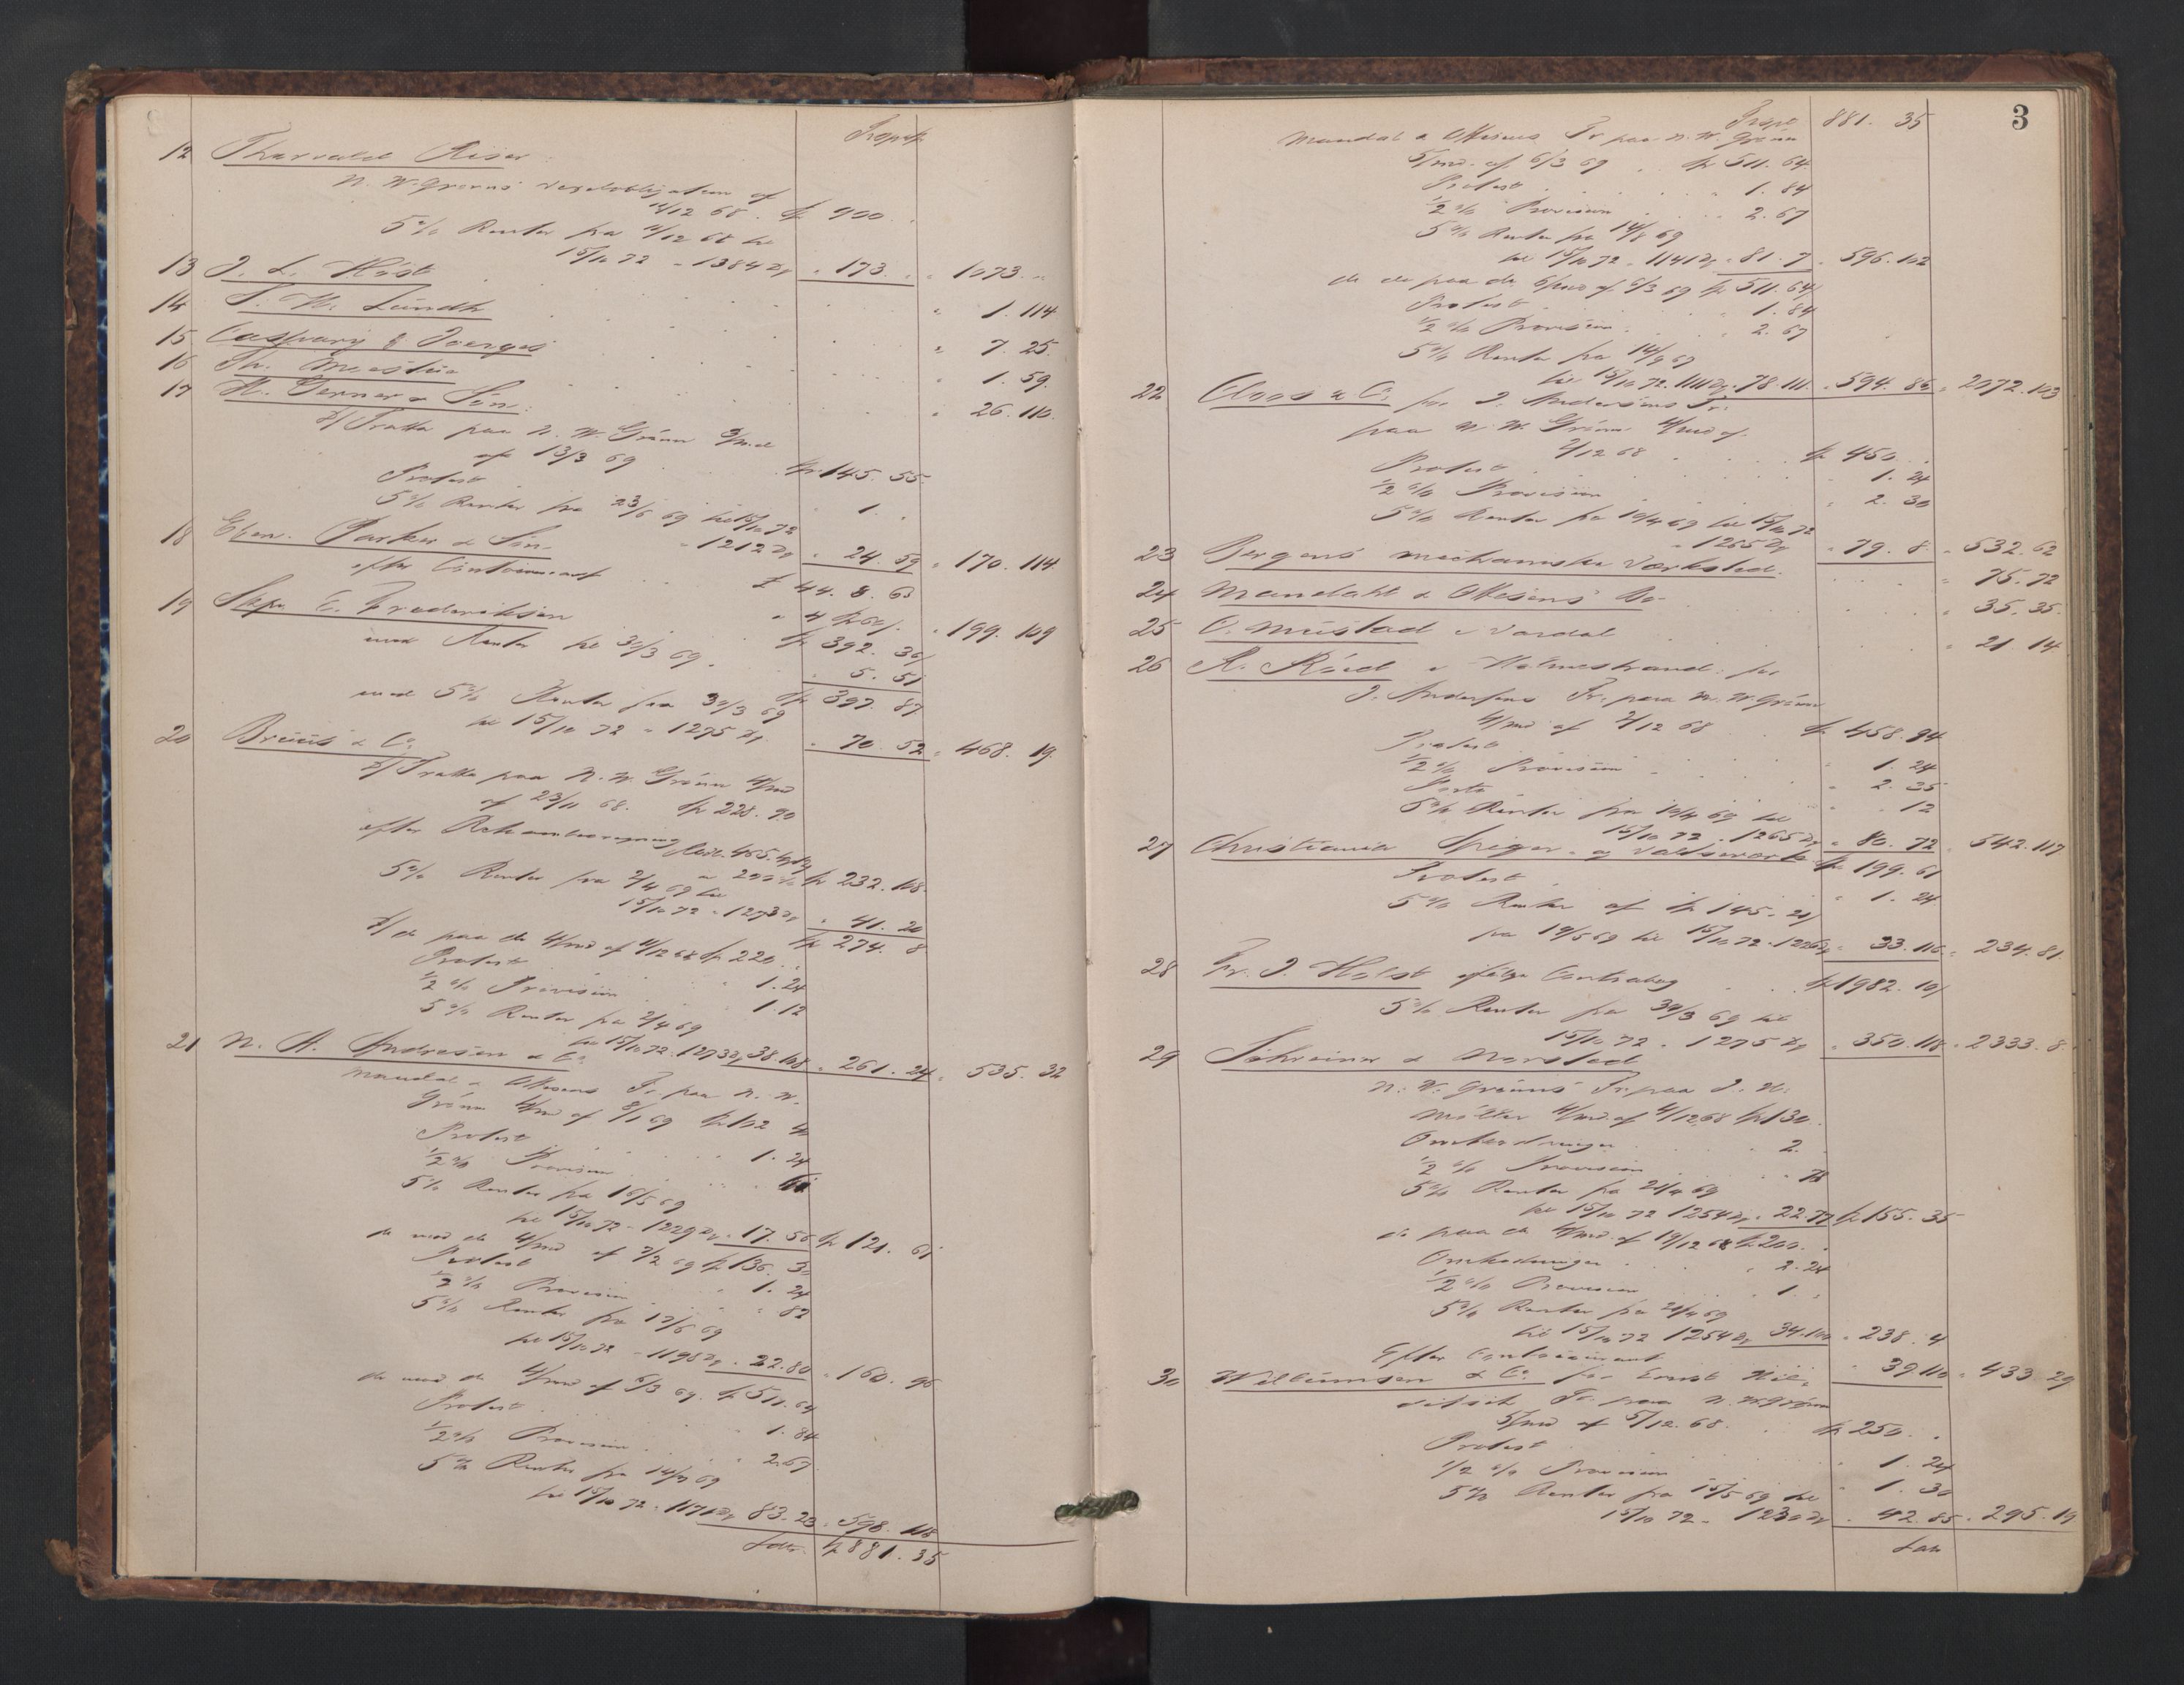 Trspt
12 Thorvald Riser
N. W. Grøns Vexelobligation af
14/12 68 . Sp 900 . .
5 % Renter fra 14/12 68 til
15/10 72 " 1384 Dg " 173. " " 1073. "
13 J. L. Höst
14 S. M. Lündh . . . . " 1. 114
15 Caspary & Joerges . . . . " 7. 25.
16 Th. . . . . " 1. 59.
17 H. Gerner & Sön. . . . . " 26. 110.
Tratta paa N. W. Grönn 3/md
af 13/3 69 . . Sp 145. 55.
Protest . . . " 1. "
5 % Renter fra 23/6 69 til 15/10 72
" 1212 Dg " 24. 59 " 170. 114.
18 Eben. Parker & Sön
efter Contocourant . . £ 44. 8. 6
19 Skpr. C. Frederiksen " 199. 109
Sp 392. 36
med Renter til 30/3 69 . " 5. 51
Sp 397. 87
med 5 % Renter fra 30/3 69
til 15/10 72 " 1275 Dg. " 70. 52 " 468. 19.
20 Brüüs & Co
Tratta paa N. W. Grönn 4/md
af 23/11 68. Sp 228. 90
efter 465.
Sp 232. 108.
5 % Renter fra 2/4 69 til
15/10 72 " 1273 Dg " 41. 20
Sp 274. 8.
do paa do 4/md af 4/12 68 Sp 220 . .
Protest . . . 1. 24
1/2 % Provision . . 1. 12
5 % Renter fra 2/4 69
til 15/10 72. 1273 Dg 38. 108 " 261. 24 " 535. 32
21 N. A. Andresen & Co
Mandal & Ottesens Tr. paa N. W.
Grönn 4/md af 8/1 69 Sp 102
Protest . . . 1. 24
1/2 % Provision . .
5 % Renter fra 16/5 69
til 15/10 72 " 1229 Dg " 17. 56 Sp 121. 61
do med do 4/md af 9/2 69 Sp 136. 30
Protest . . " 1. 24
1/2 % Provision . " 82
5 % Renter fra 17/6 69
til 15/10 72 " 1198 Dg " 22. 80 " 160. 96
do med do 4/md af 6/3 69. Sp 511. 64
Protest . . . 1. 84
1/2 % Provision . . " 2. 67
5 % Renter fra 14/7 69
til 15/10 72 " 1171 Dg 83. 23 " 598. 118
Latr. Sp 881. 35
3
Trspt 881. 35
Mandal & Ottesens Tr paa N. W. Grönn
5/md. af 6/3 69 . . Sp 511. 64
Protest . . . " 1. 84
1/2 % Provision . . . 2. 67
5 % Renter fra 14/8 69
til 15/10 72 " 1141 Dg " 81. 7 " 596. 102
do do paa do 6/md af 6/3 69 Sp 511. 64
Protest . . " 1. 84
1/2 % Provision. . " 2. 67
5 % Renter fra 14/9 69
til 15/10 72. 1111 Dg " 78. 111 " 594. 86 " 2072. 103
22 Cloos & Co. for J. Andersens Tr.
paa N. W. Grönn 4/md af
7/12 68 . . . Sp 450 . .
Protest . . . . " 1. 24
1/2 % Provision . . . " 2. 30
5 % Renter fra 10/4 69 til 15/10 72
" 1265 Dg " 79. 8. " 532. 62
23 Bergens mechaniske Værksted. . . . " 75. 72
24 Mandahl & Ottesens Bo . . . . " 35. 35.
25 O. Müstad i Vardal . . . . " 21. 14
26 A. Röed i Holmestrand. for
J. Andersens Tr. paa N. W. Grönn
4/md af 7/12 68 . . Sp 458. 84
Protest . . . " 1. 24
1/2 % Provision . . " 2. 35
Porto . . " " 12
5 % Renter fra 10/4 69 til
15/10 72 " 1265 Dg " 80. 72 " 542. 117
27 Christiania Spiger- og Valseverk Sp 199. 61
Protest . . . " 1. 24
5 % Renter af Sp 145. 21
fra 19/5 69 til 15/10 72. 1226 Dg " 33. 116 " 234. 81.
28 Fr. J. Holst ifølge Contrabog . . Sp 1982. 10
5 % Renter fra 30/3 69 til
15/10 72 " 1275 Dg " 350. 118 " 2333. 8.
29 Schreiner & Narsted
N. W. Grönns Tr. paa J. N.
Möller 4/md af 4/12 68 Sp 130.
Omkostninger . . " 2.
1/2 % Provision . . . 78
5 % Renter fra 21/4 69
til 15/10 72 1254 Dg " 22. 77 Sp 155. 35
do paa do 4/md. af 19/12 68 Sp 200. .
Omkostninger . . " 2. 24
1/2 % Provision . . " 1. "
5 % Renter fra 21/4 69
til 15/10 72 1254 Dg 34. 100 " 238. 4
Efter Contocourant " 39. 110 " 433. 29
30 Willümsen & Co for Ernst
Tr. paa N. W. Grönn
5/md af 5/12. 68. . Sp 250 . .
Protest . . . . " 1. 24
1/2 % Provision . . . " 1. 30
5 % Renter fra 15/5 69 til
15/10 72 " 1230 Dg " 42. 85 " 295. 19
Latr